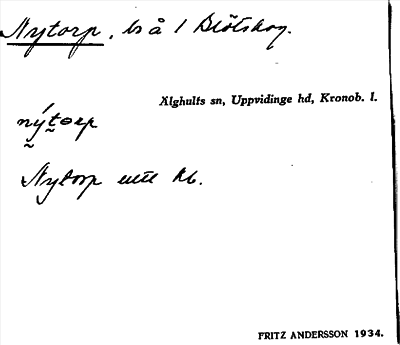 Nytorp, ls å 1 Blötskog.
Älghults sn, Uppvidinge hd, Kronob. l.
nýtorp
Nytorp enl kb.
FRITZ ANDERSSON 1934.